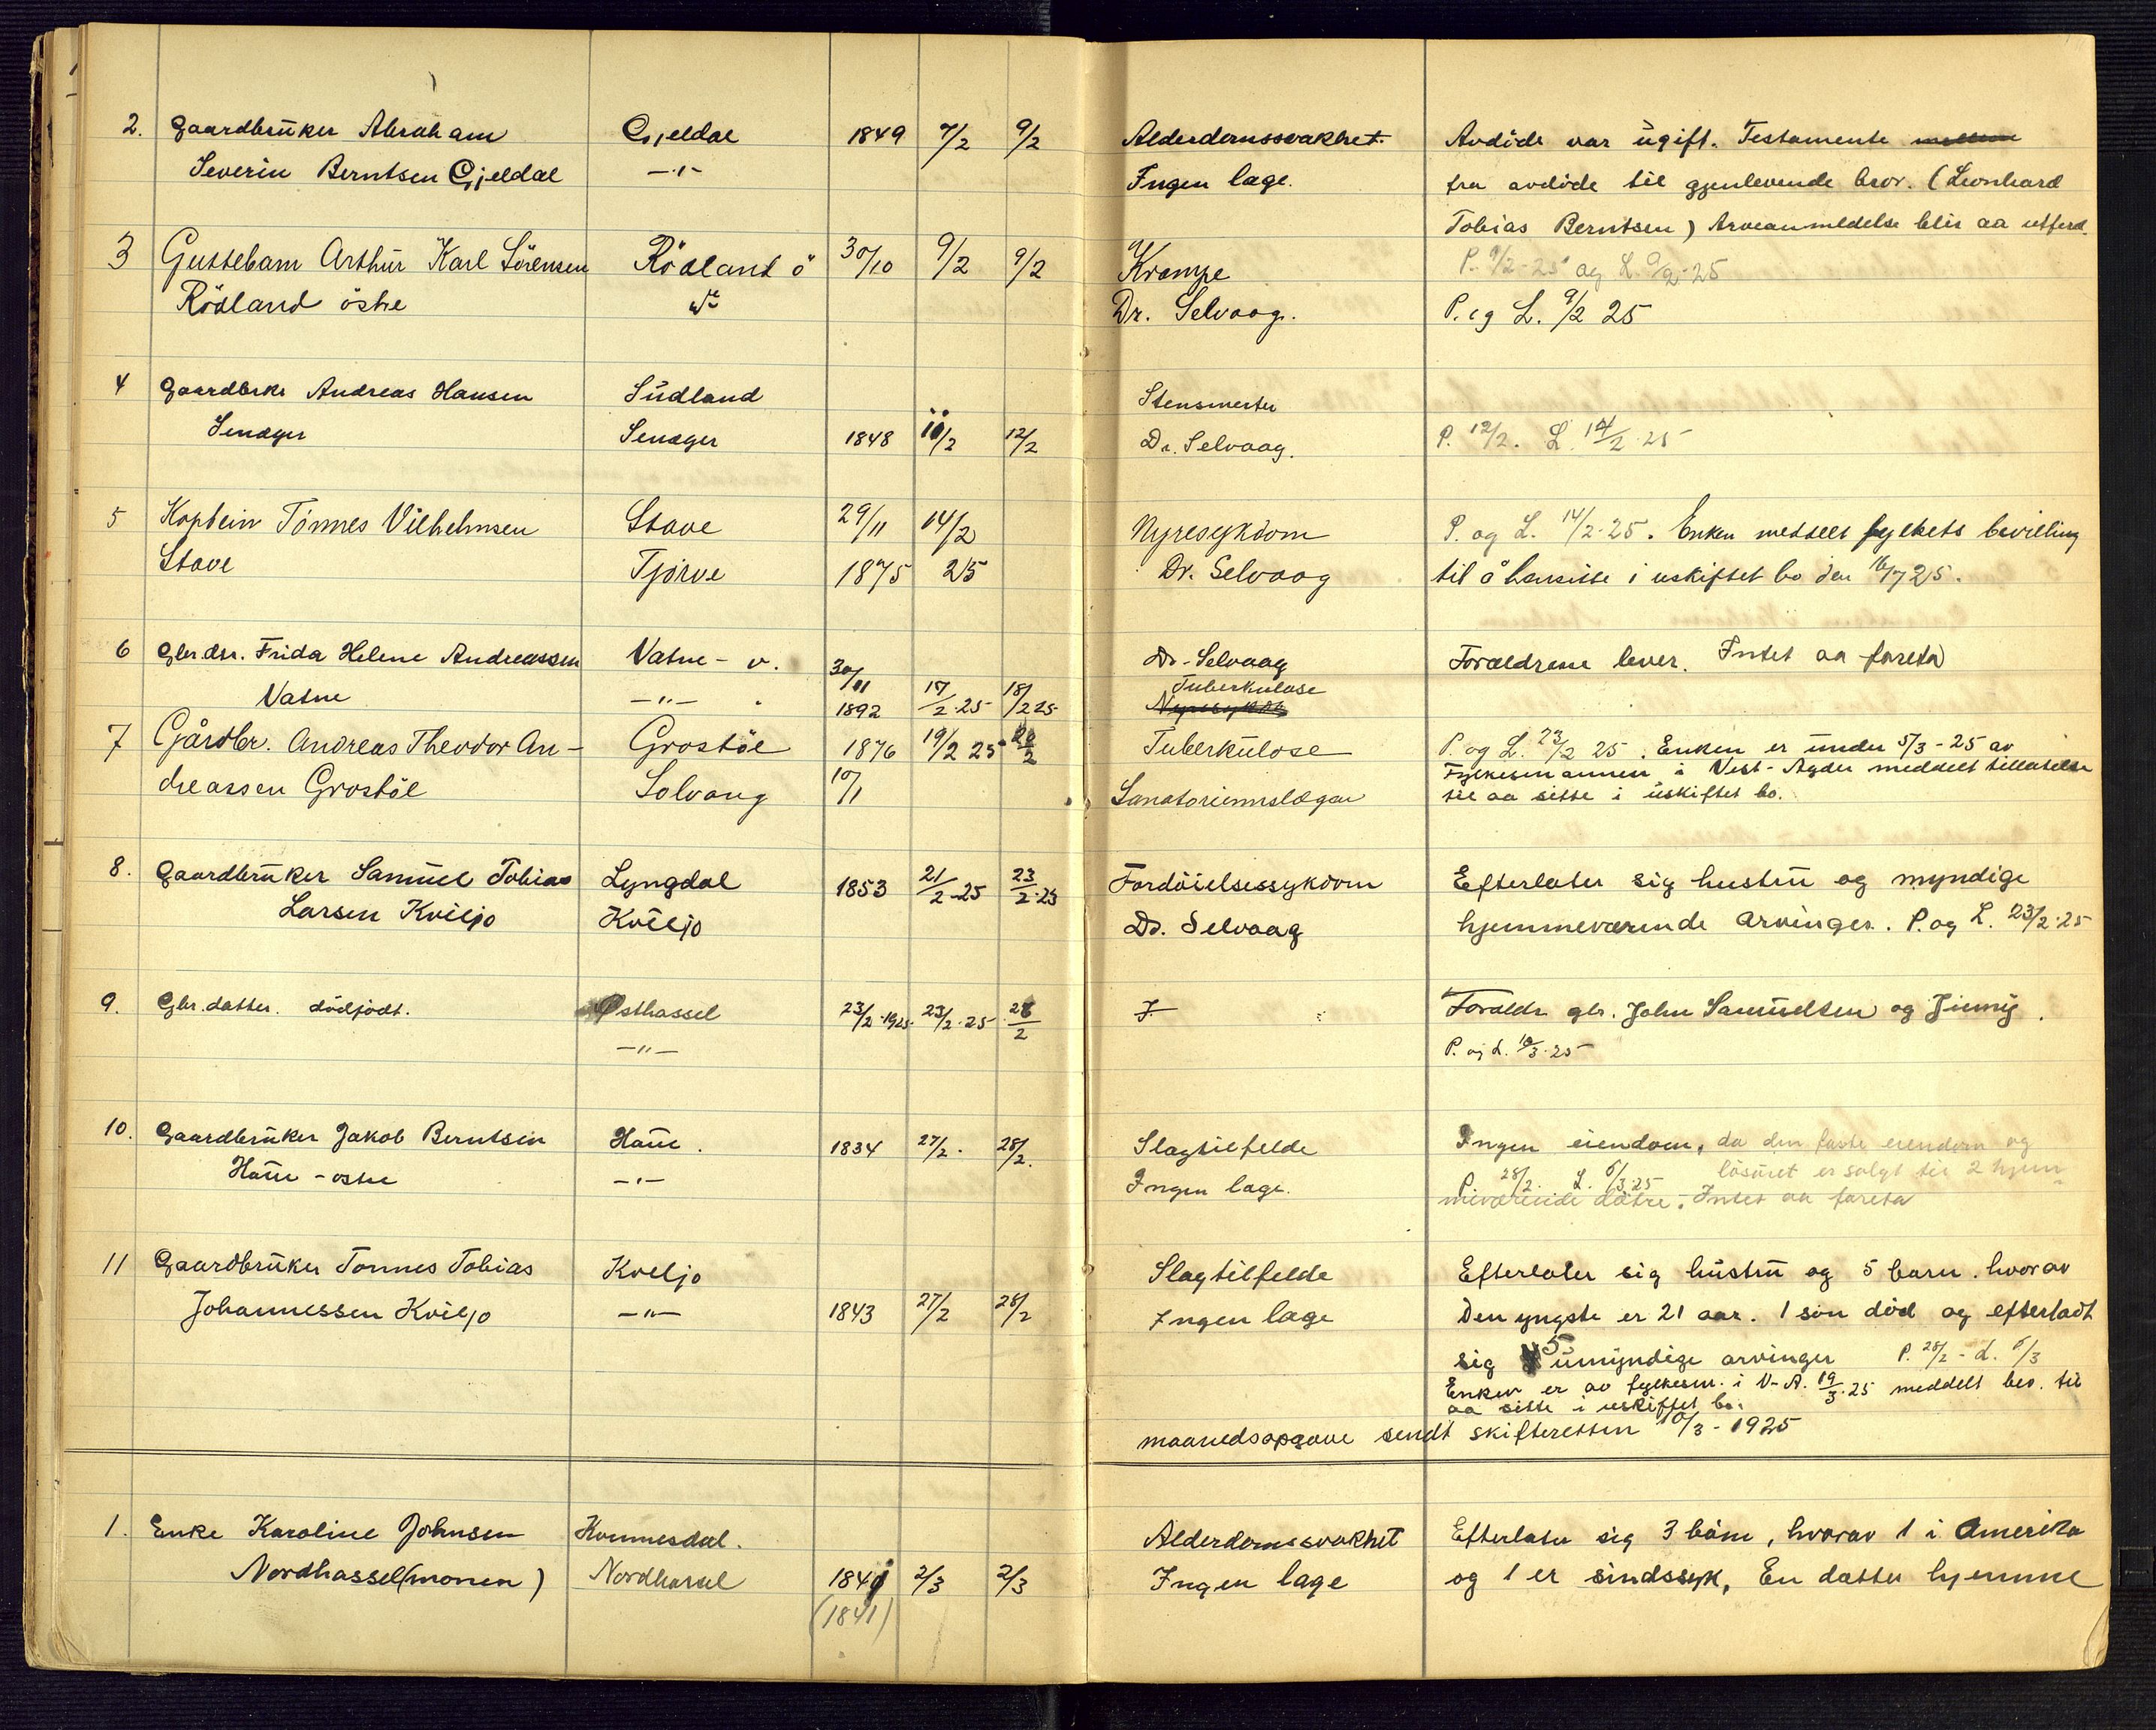 2. Gaardbrüker Abraham Gjeldal 1849 7/2 9/2 Alderdomssvakhet. Avdöde var ügift. Testamente
Severin Berntsen Gjeldal —"— Ingen læge. fra avdöde til gjenlevende bror. (Leonhard
Tobias Berntsen) Arveanmeldelse blir aa utferd.
3 Guttebarn Arthür Karl Sörensen Rödland ö 30/10 9/2 9/2 Krampe P. 9/2-25 og L. 9/2-25
Rödland östre Dr. Selvaag. P. og L. 9/2 25
4 Gaardbrker Andreas Hansen Südland Stensmerter
Senager Senager 1848 10/2 12/2 Dr. Selvaag. P. 12/2. L. 14/2.25
5 Kaptein Tönnes Vilhelmsen Stave 29/11 14/2 Nyresykdom P. og L. 14/2-25. Enken meddelt fylkets bevilling
Stave Tjörve 1875 25 Dr. Selvaag til å hensitte i uskiftet bo den 16/7 25.
6 Gbr.dtr. Frida Helene Andreassen Vatne - v. 30/11 Dr. Selvaag Forældrene lever. Intet aa foreta
Vatne —"— 1892 17/2.25 18/2 25 Tuberkulose
7 Gårdbr. Andreas Theodor An- Grostöl 1876 19/2 25 20/2 Tuberkülose P. og L. 23/2 25. Enken er ünder 5/3-25 av
Fylkesmannen i Vest-Agder meddelt tillatelse
dreassen Grostöl Solvang 10/1 Sanatoriumslægen til aa sitte i üskiftet bo.
8. Gaardbrüker Samüel Tobias Lyngdal 1853 21/2-25 23/2.25 Fordöielsessykdom Efterlater sig hustrü og myndige
Larsen Kviljo Kviljo Dr. Selvaag hjemmeværende arvinger. P. og L. 23/2.25
9. Gbr. datter. dödfödt. Østhassel 23/2.1925 23/2.25 28/2 Forældr gbr. John Samüelsen og Jinny.
—"— P. og L. 10/3.25
10. Gaardbrüker Jakob Berntsen Haüe. 1834 27/2. 28/2. Slagtilfelde Ingen eiendom, da den faste eiendom og
lösöret er solgt til 2 hjem-
Haüe - östre —"— Ingen læge. P. 28/2. L. 6/3.25
meværende döttre. Intet aa foreta
11 Gaardbrüker Tönnes Tobias Kviljo Slagtilfelde Efterlater sig hüstrü og 5 barn. hvorav
Johannessen Kviljo —"— 1843 27/2 28/2 Ingen læge Den yngste er 21 aar. 1 sön död og efterladt
sig 5 ümyndige arvinger P. 28/2 - L. 6/3
Enken er av fylkesm. i V-A. 19/3.25 meddelt bev. til
aa sitte i uskiftet bo.
maanedsopgave sendt skifteretten 10/3-1925
1. Enke Karoline Johnsen Kvinnesdal. Alderdomssvakhet Efterlater sig 3 barn, hvorav 1 i Amerika
Nordhassel (monen) Nordhassel 1841 2/3 2/3 Ingen læge og 1 er sindssyk, En datter hjemme
(1841)